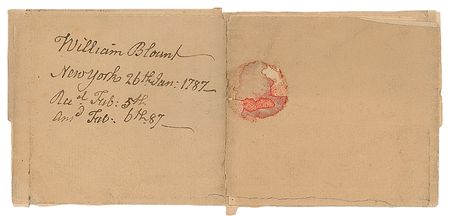 William Blount
New York 26th Jan: 1787
Rec.d Feb: 5th
Ans.d Feb: 6th: 87